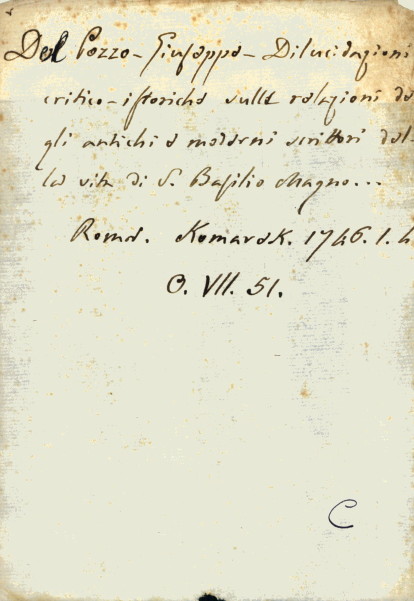 Del Pozzo - Giuseppe - Dilucidazioni
critico-istoriche sulle relazioni de
gli antichi e moderni scrittori del-
la vita di S. Basilio Magno...
Roma. Komarek. 1746. 1. 4
O. VII. 51.
C